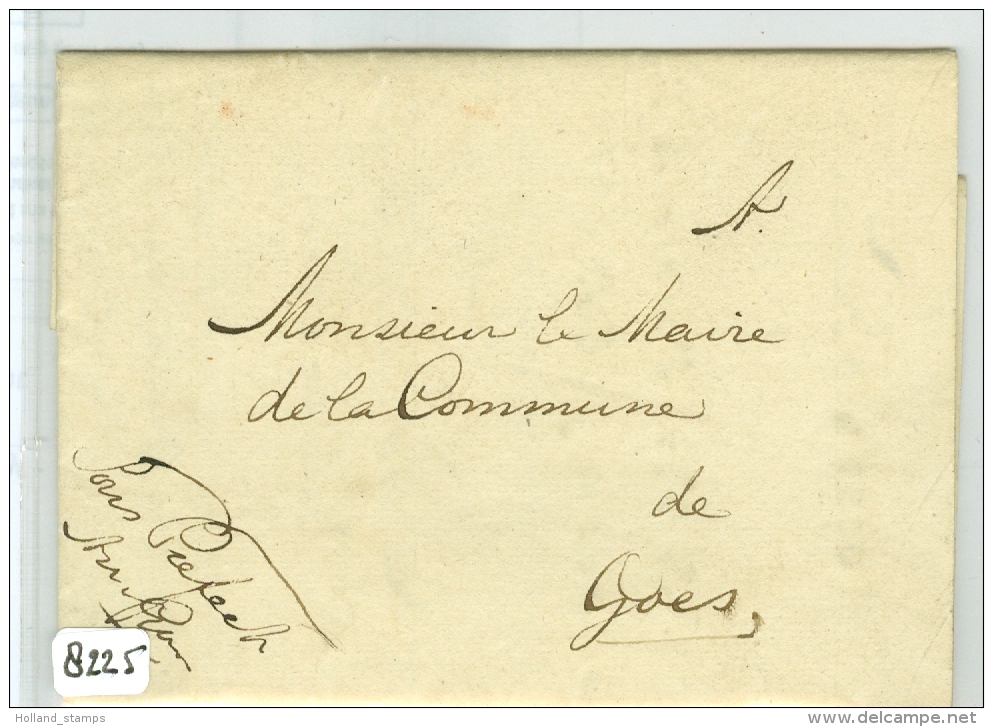 A.
Monsieur le Maire
de la Commune
de
Goes,
Sous Prefect
8225
Holland_stamps
delcampe.net